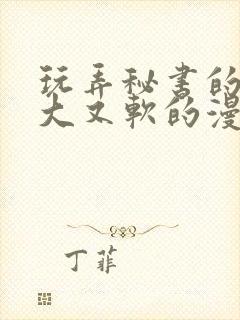 玩弄秘书的
大又软的漫
丁菲